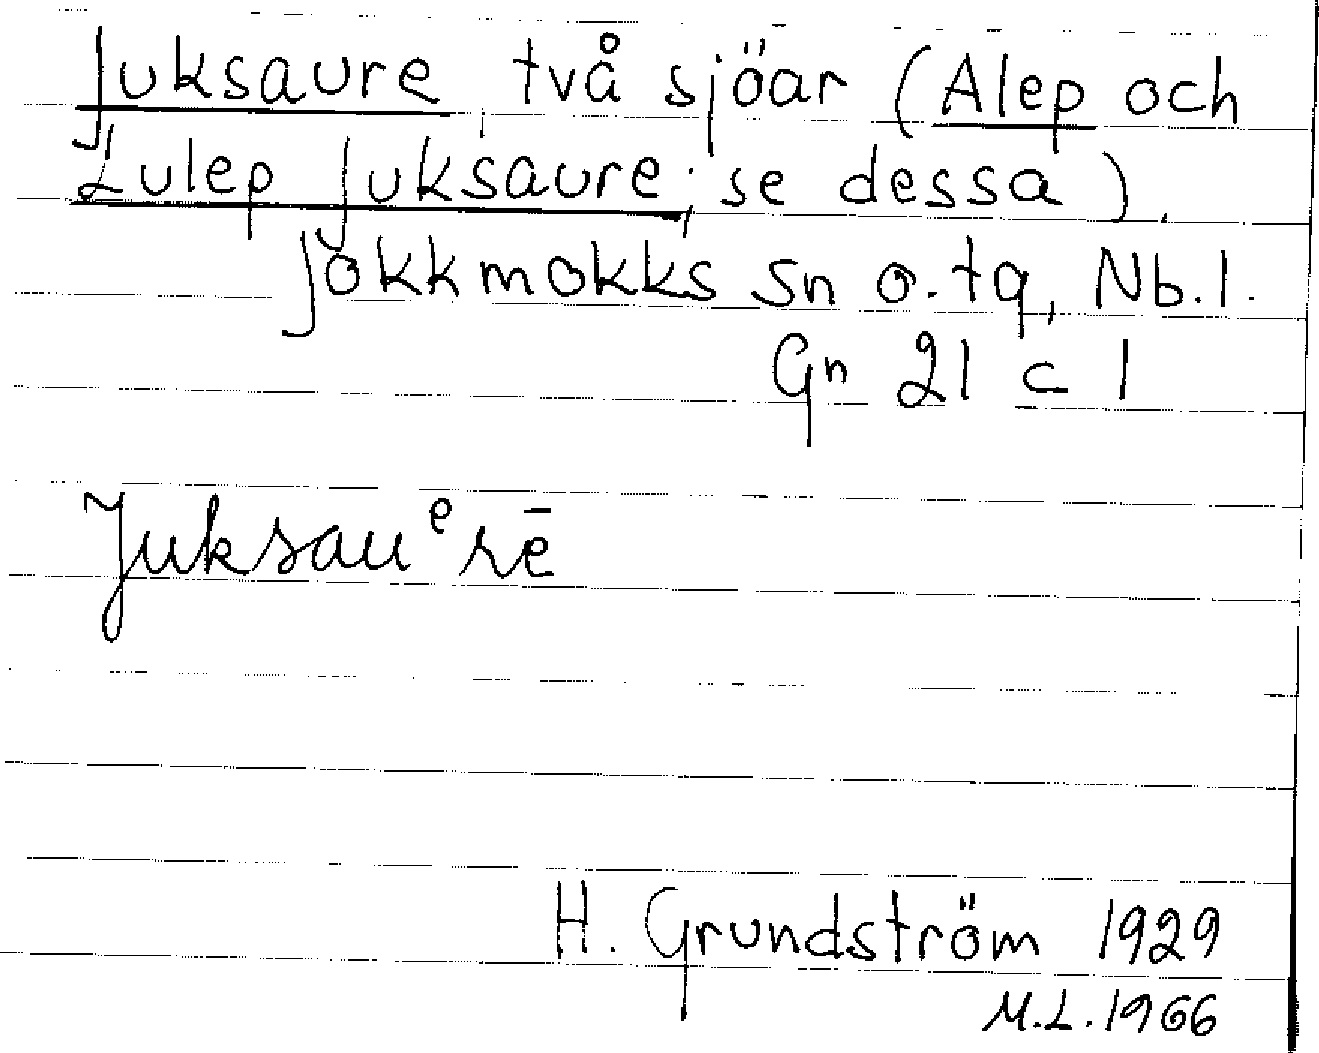 Juksaure, två sjöar (Alep och
Lulep Juksaure, se dessa),
Jokkmokks sn o. tg, Nb. l.
Gn 21 c 1
Juksauᵉrē
H. Grundström 1929
M.L. 1966